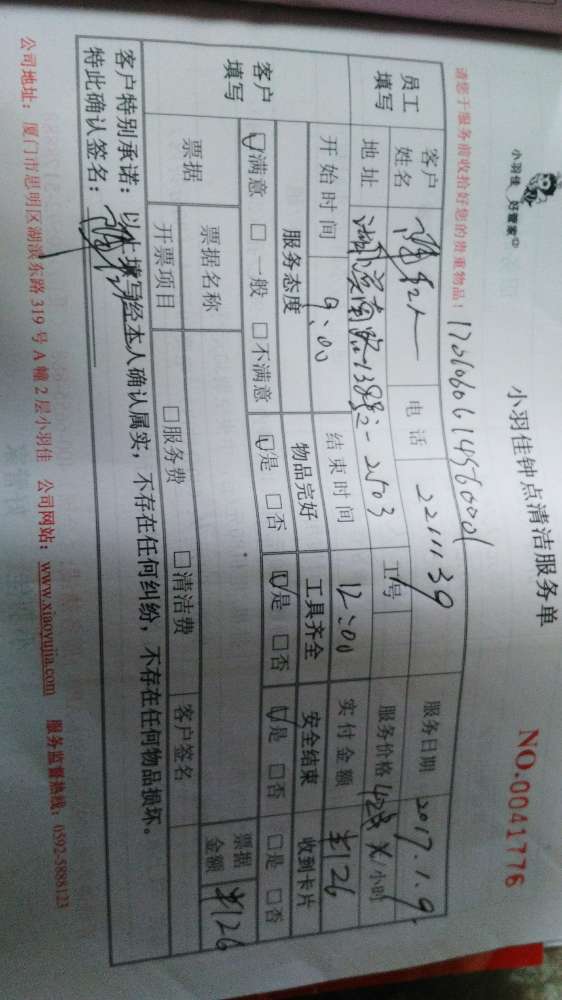 小羽佳 好管家
小羽佳钟点清洁服务单
NO.0041776
请您于服务前收拾好您的贵重物品!
员工填写 客户姓名 电话 2211139 服务日期 2017.1.9
地址 湖滨南路 2503 工号 服务价格 元/小时
开始时间 9:00 结束时间 12:00 实付金额 ¥126
客户填写 服务态度 物品完好 工具齐全 安全结束 收到卡片
☑满意 □一般 □不满意 ☑是 □否 ☑是 □否 ☑是 □否 □是 □否
票据 票据名称 票据金额 ¥126
开票项目 □服务费 □清洁费 客户签名
客户特别承诺:以上填写经本人确认属实,不存在任何纠纷,不存在任何物品损坏。
特此确认签名:
公司地址:厦门市思明区湖滨东路319号A幢2层小羽佳 公司网站:www.xiaoyujia.com 服务监督热线:0592-5888123